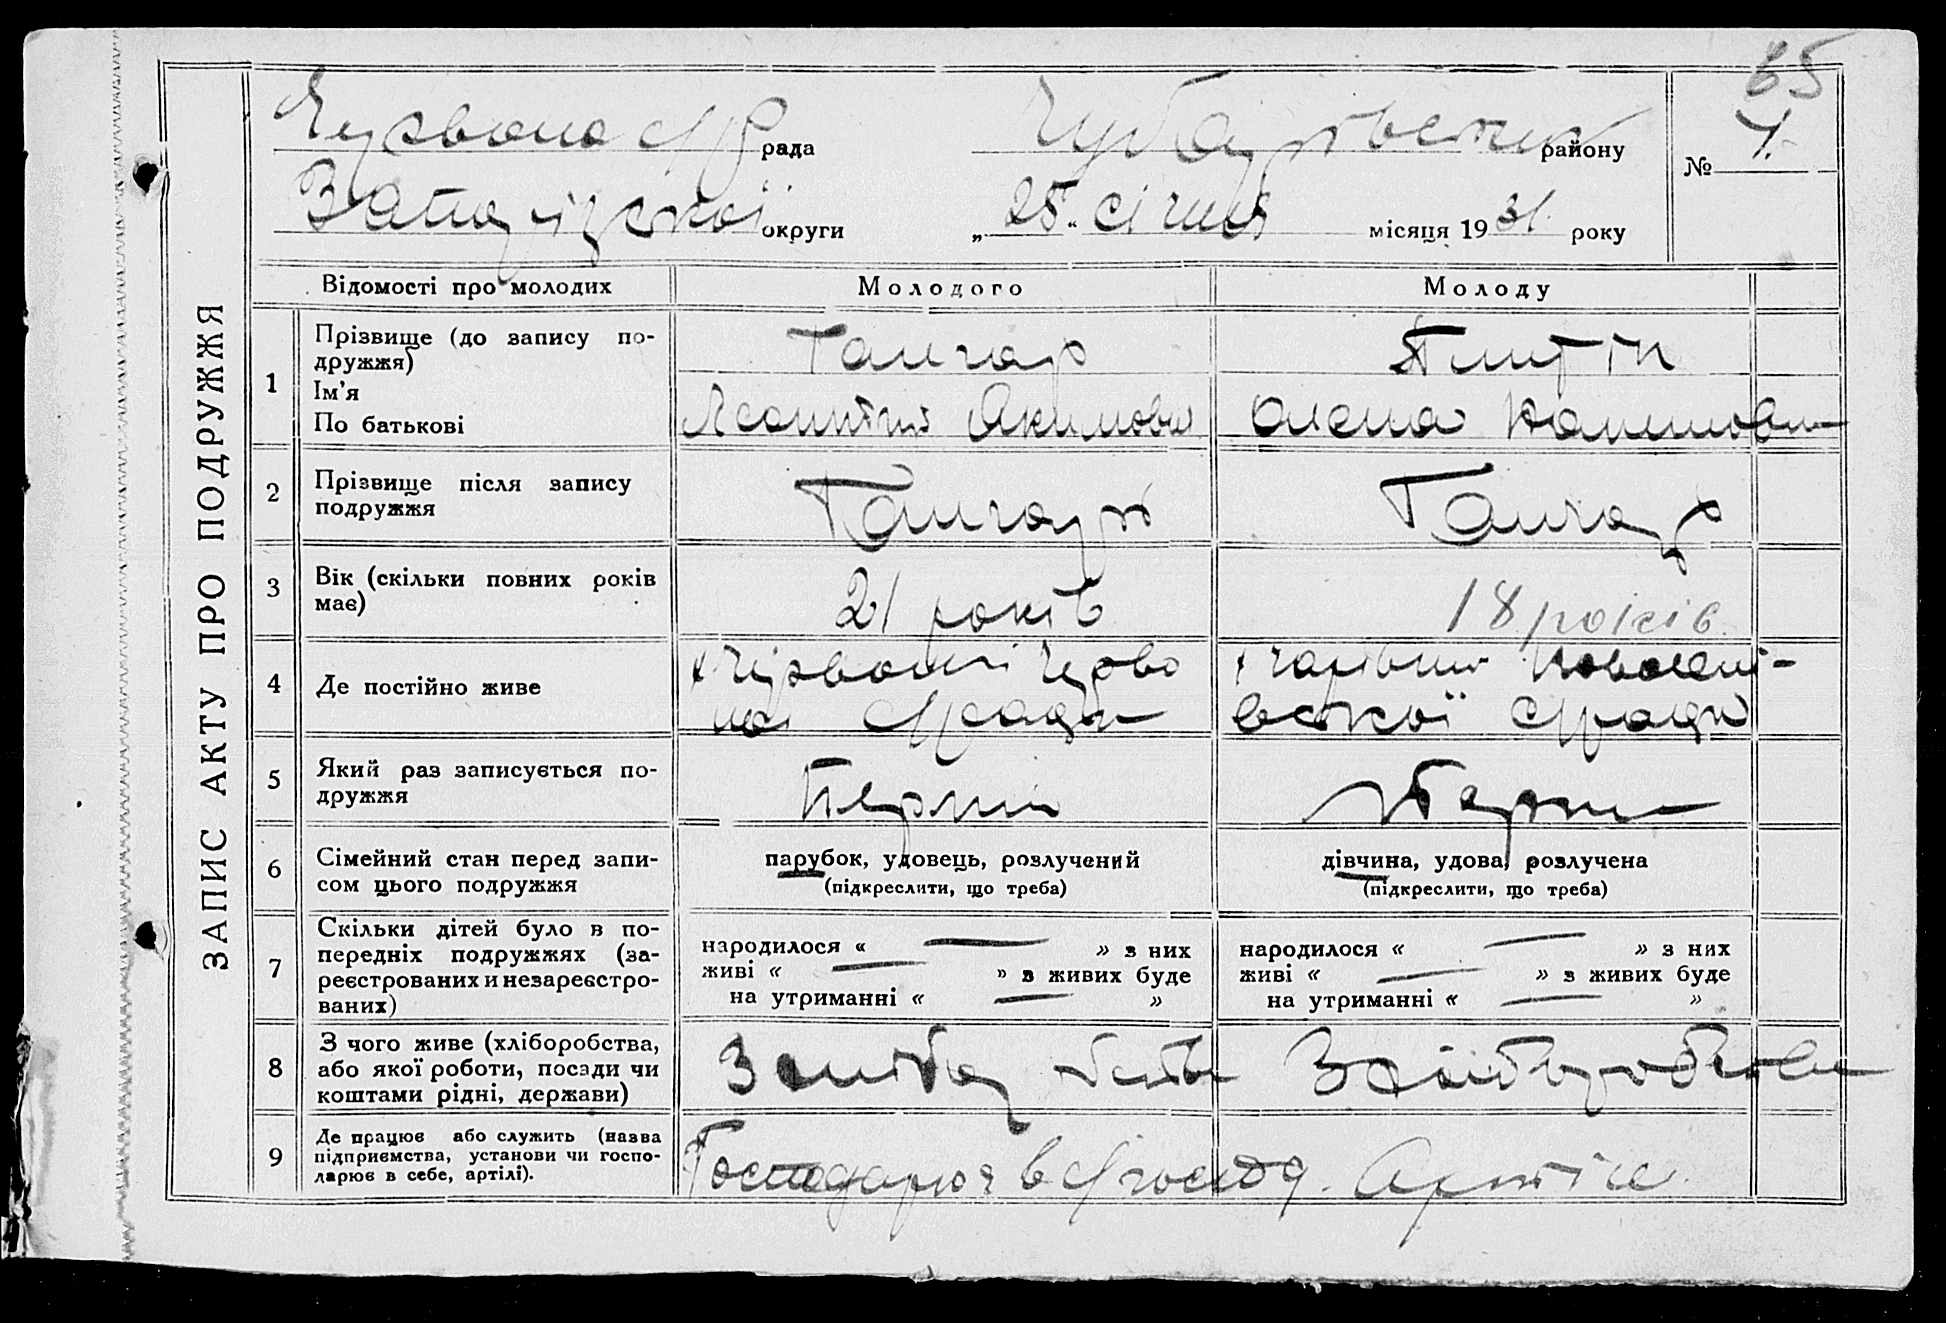 65
Червона с/р рада Чубарівський району № 1.
Запорізської округи „25" січня місяця 1931 року
ЗАПИС АКТУ ПРО ПОДРУЖЖЯ
Відомості про молодих Молодого Молоду
1 Прізвище (до запису по-
дружжя)
Ім'я
По батькові
Ганчар
Акимович
Олена
2 Прізвище після запису
подружжя
Ганчар Ганчар
3 Вік (скільки повних років
має)
21 років 18 років
4 Де постійно живе
с/ради
вської с/ради
5 Який раз записується по-
дружжя
Перший Перший
6 Сімейний стан перед запи-
сом цього подружжя
парубок, удовець, розлучений
(підкреслити, що треба)
дівчина, удова, розлучена
(підкреслити, що треба)
7 Скільки дітей було в по-
передніх подружжях (за-
реєстрованих и незареєстро-
ваних)
народилося « — » з них
живі « — » з живих буде
на утриманні « — »
народилося « — » з них
живі « — » з живих буде
на утриманні « — »
8 З чого живе (хліборобства,
або якої роботи, посади чи
коштами рідні, держави)
9 Де працює або служить (назва
підприємства, установи чи госпо-
дарює в себе, артілі).
Господарює в с/господ. Артіл.